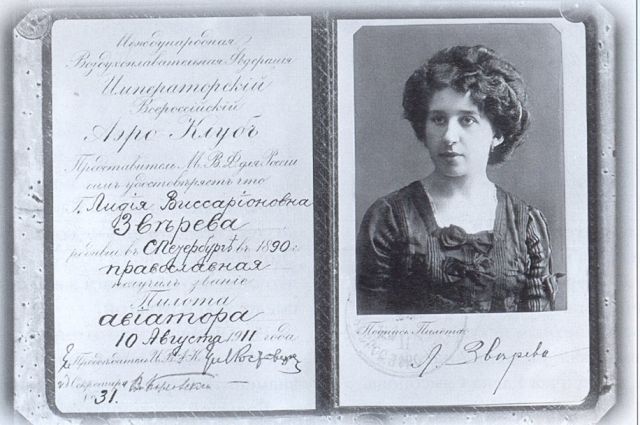 Международная
Воздухоплавательная Федерація
Императорскій
Всероссійскій
Аэро Клубъ
Представитель М. В. Ф. для Россіи
симъ удостовѣряетъ что
Г. Лидія Виссаріоновна
Звѣрева
въ С Петербургѣ въ 1890 г.
православная
получилъ званіе
Пилота
авіатора
10 Августа 1911 года
Секретарь
31.
Подпись Пилота
Л. Звѣрева